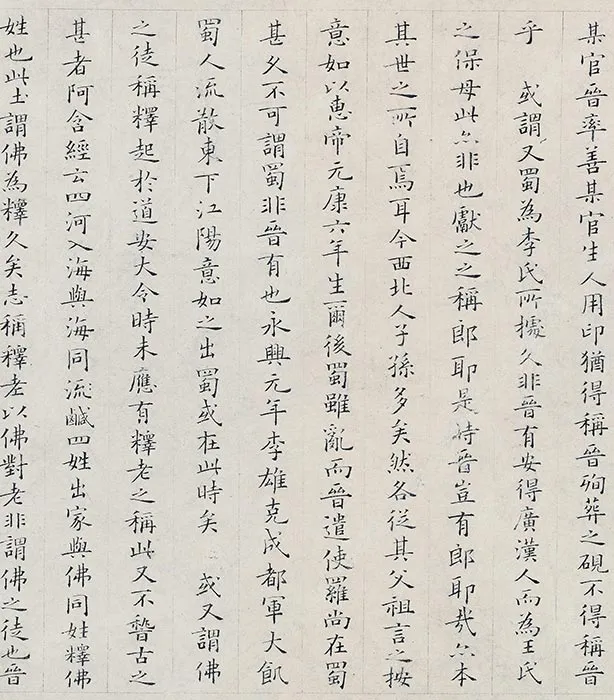 某官晉率善某官生人用印猶得稱晉殉葬之硯不得稱晉
乎 或謂又蜀為李氏所據久非晉有安得廣漢人而為王氏
之保母此尒非也獻之之稱郎耶是時晉豈有郎耶哉尒本
其世之所自焉耳今西北人子孫多矣然各從其父祖言之按
意如以惠帝元康六年生爾後蜀雖亂而晉遣使羅尚在蜀
甚久不可謂蜀非晉有也永興元年李雄克成都軍大飢
蜀人流散東下江陽意如之出蜀或在此時矣 或又謂佛
之徒稱釋起於道安大令時未應有釋老之稱此又不稽古之
甚者阿含經云四河入海與海同流鹹四姓出家與佛同姓釋佛
姓也此土謂佛為釋久矣志稱釋老以佛對老非謂佛之徒也晉